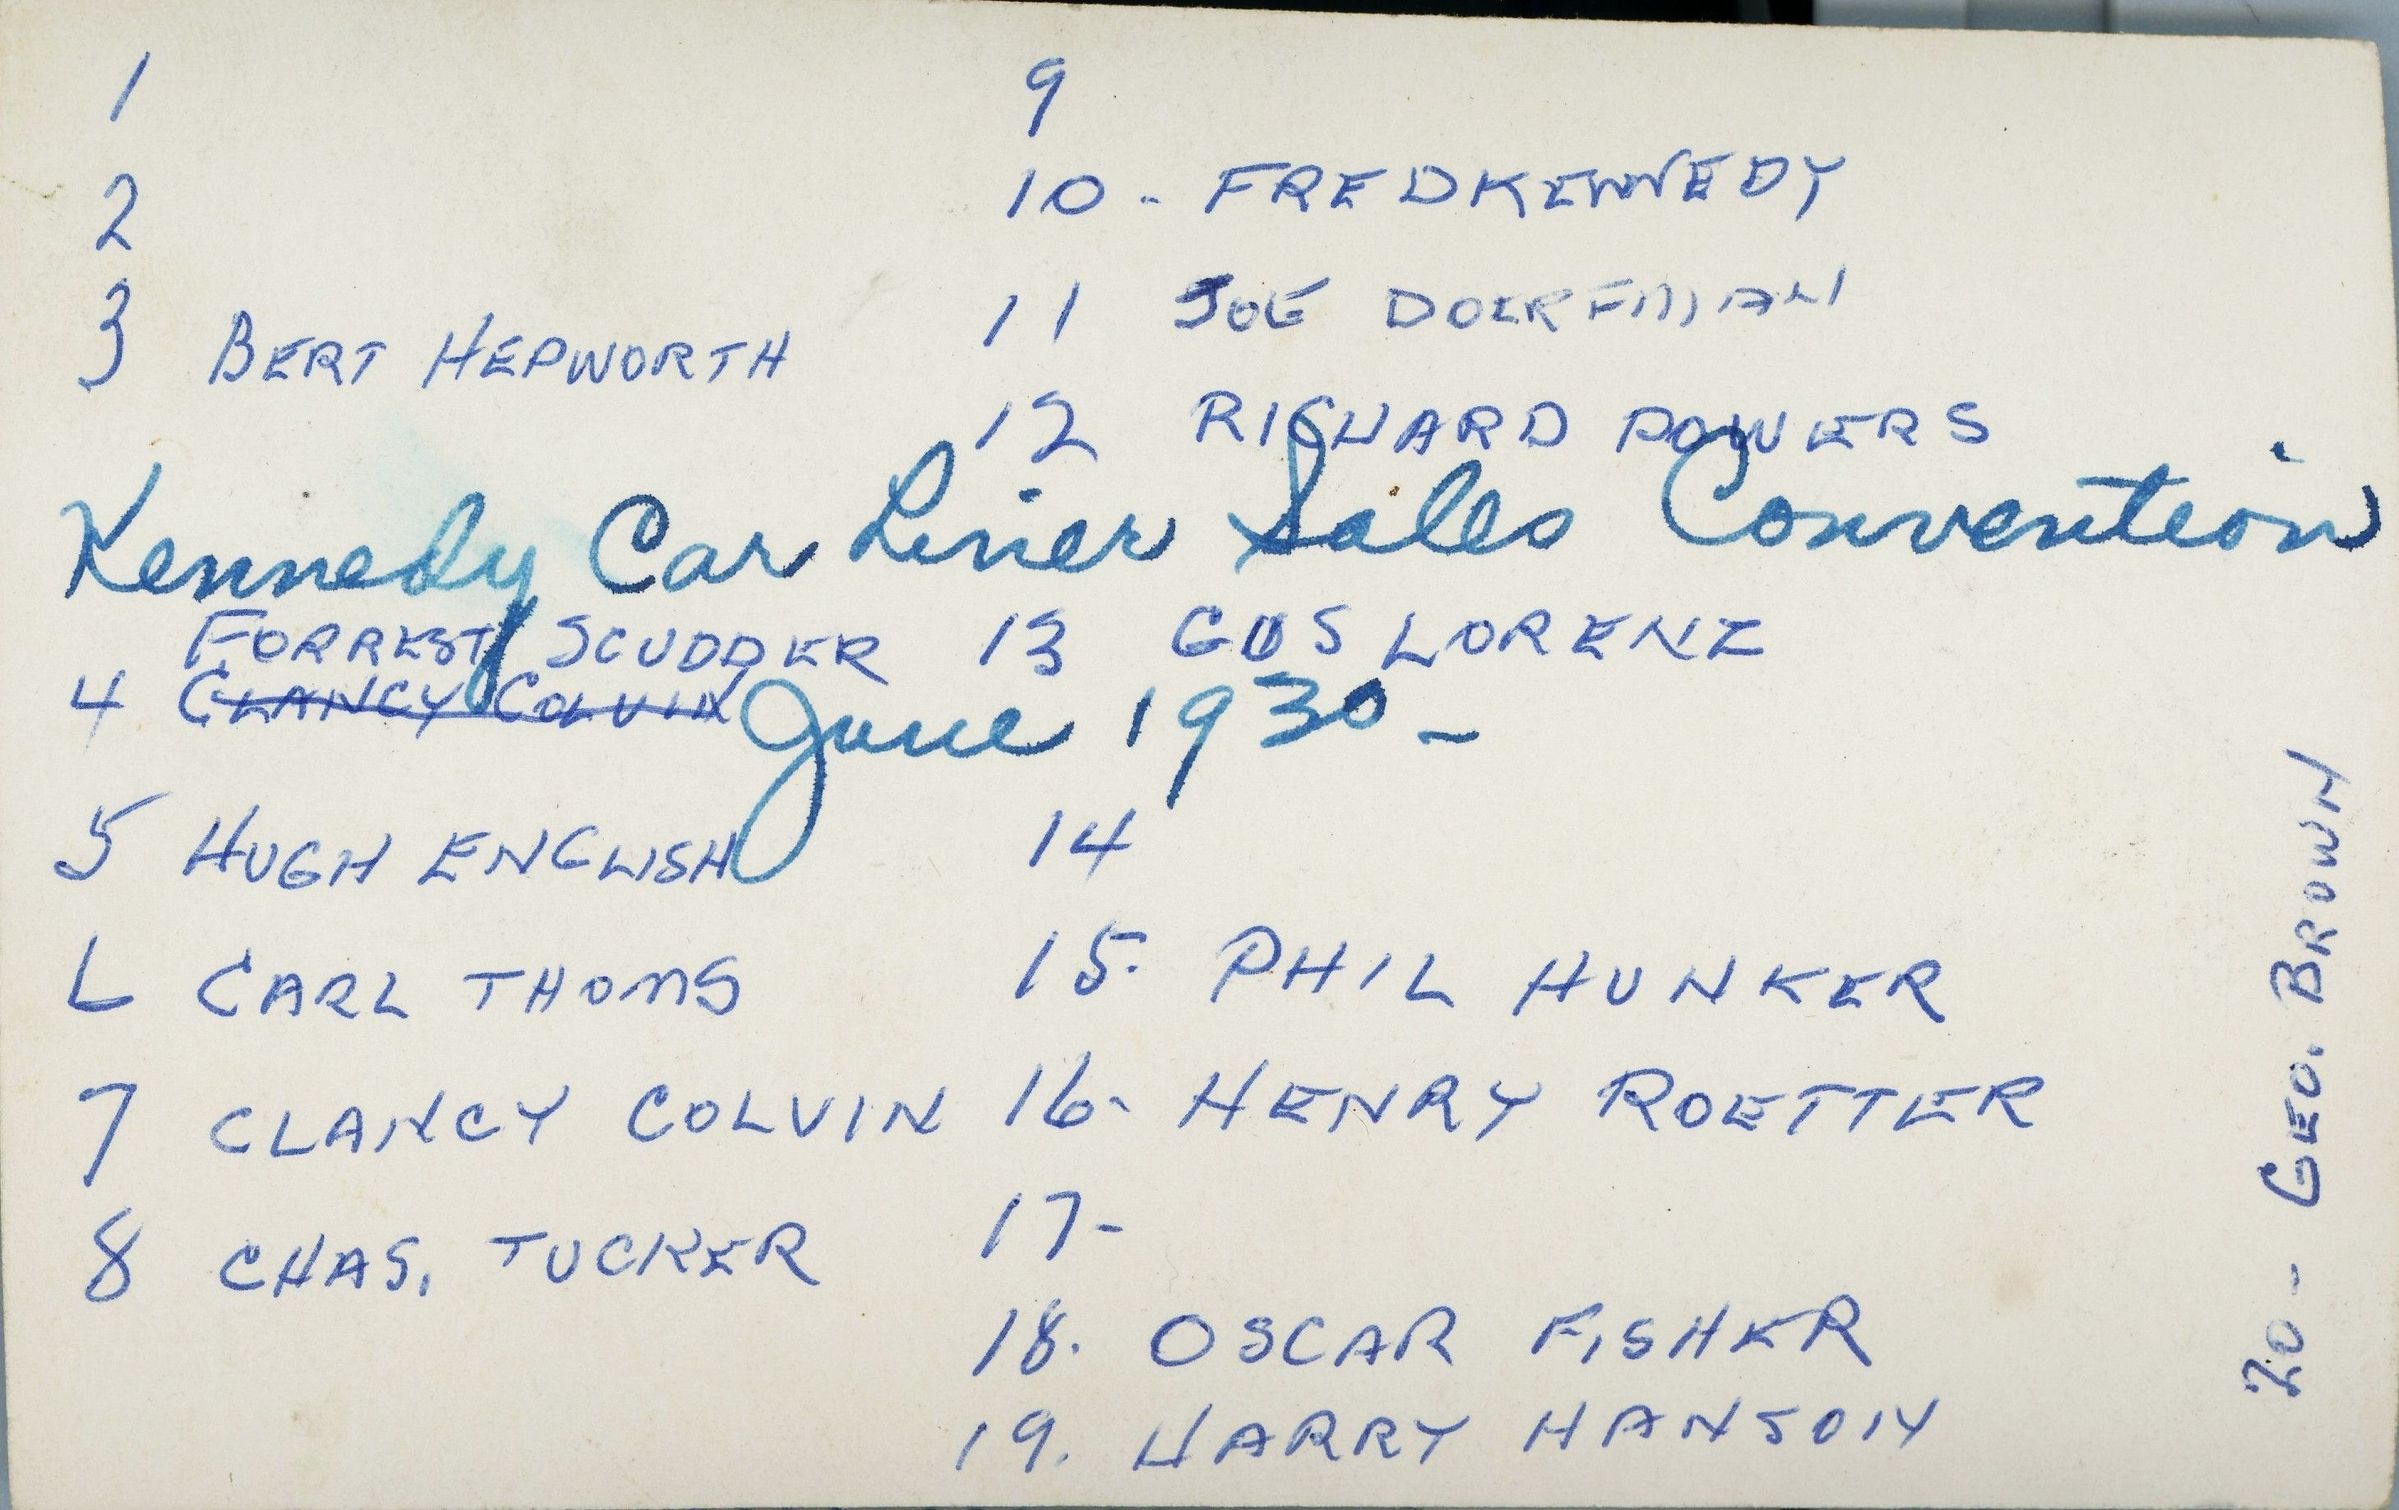 1
2
3 BERT HEPWORTH
9
10 - FRED KENNEDY
11 JOE DOERFMAN
12 RICHARD POWERS
Kennedy Car Liner Sales Convention
FORREST SCUDDER
4 CLANCY COLVIN
13 GUS LORENZ
June 1930 -
5 HUGH ENGLISH
6 CARL THOMS
7 CLANCY COLVIN
8 CHAS. TUCKER
14
15. PHIL HUNKER
16- HENRY ROETTER
17-
18. OSCAR FISHER
19. HARRY HANSON
20 - GEO. BROWN